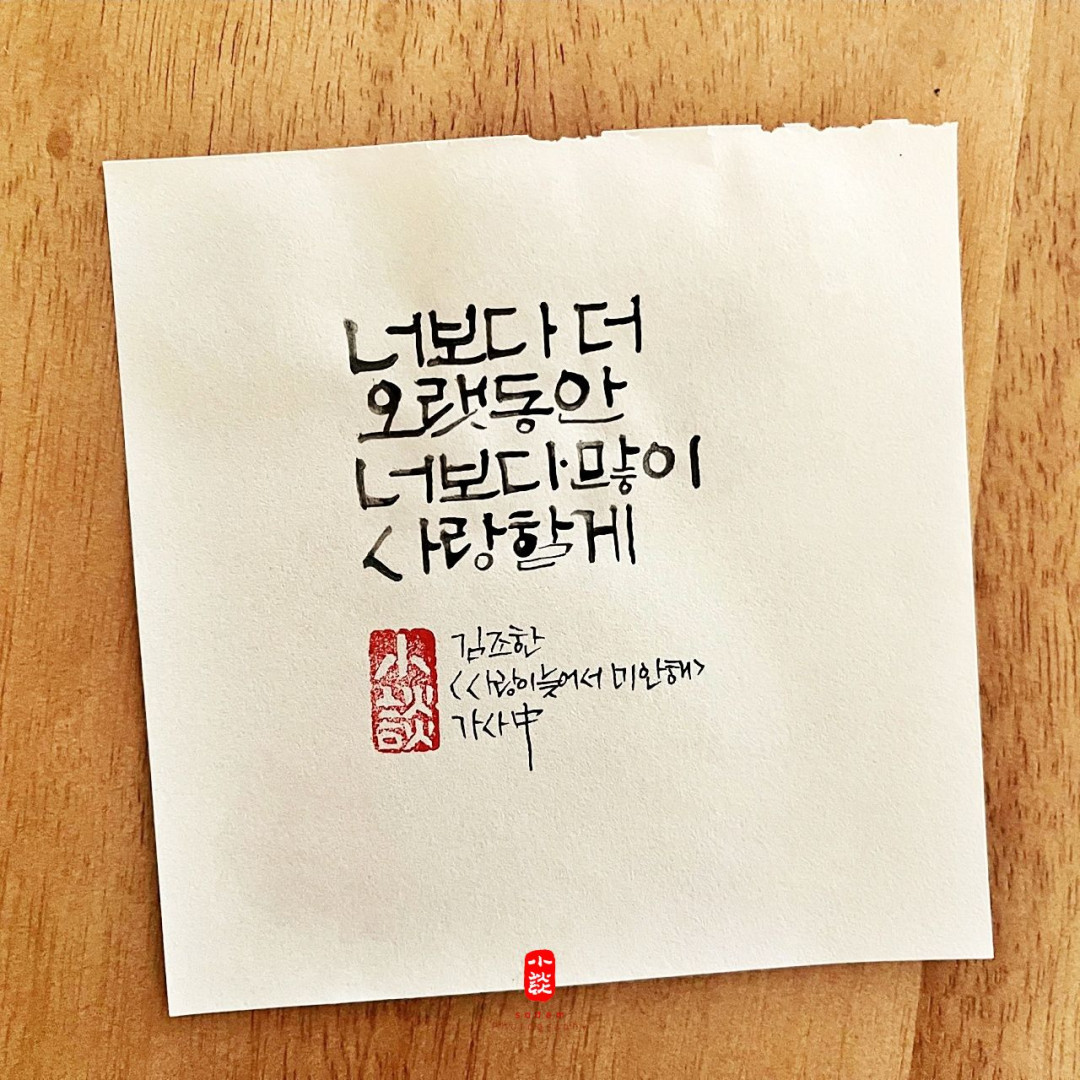 너보다 더
오랫동안
너보다 많이
사랑할게
小談
김조한
<사랑이 늦어서 미안해>
가사中
小談